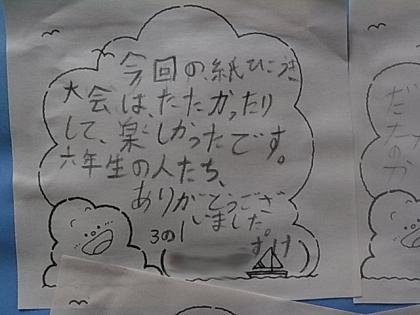 今回の紙ひこうき
大会は、たたかったり
して、楽しかったです。
六年生の人たち、
ありがとうござ
いました。
3の1
すけ